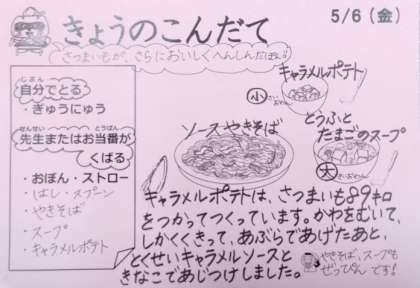 きょうのこんだて
5/6（金）
さつまいもが、さらにおいしくへんしんだぽん!!
自分でとる
じぶん
・ぎゅうにゅう
先生またはお当番が
せんせい
とうばん
くばる
・おぼん・ストロー
・はし・スプーン
・やきそば
・スープ
・キャラメルポテト
キャラメルポテト
小
さいおわん
ソースやきそば
とうふと
たまごのスープ
大
さいおわん
キャラメルポテトは、さつまいも89キロ
をつかってつくっています。かわをむいて、
しかくくきって、あぶらであげたあと、
とくせいキャラメルソースと
きなこであじつけしました。
やきそば、スープも
ぜっぴんです!